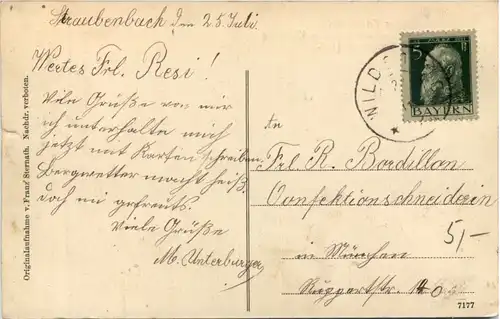 Straubenbach den 25 Juli.
Wertes Frl. Resi!
Viele Grüße von mir
ich unterhalte mich
jetzt mit Karten schreiben
Bergwetter macht heiß,
doch mi gefreuts.
Viele Grüße
M. Unterburger
Originalaufnahme v. Franz Sternath. Nachdr. verboten.
WILDS
5
BAYERN
An
Frl R. Bordillon
Confektionschneiderin
5,-
in München
Ruppertstr. 40
7177